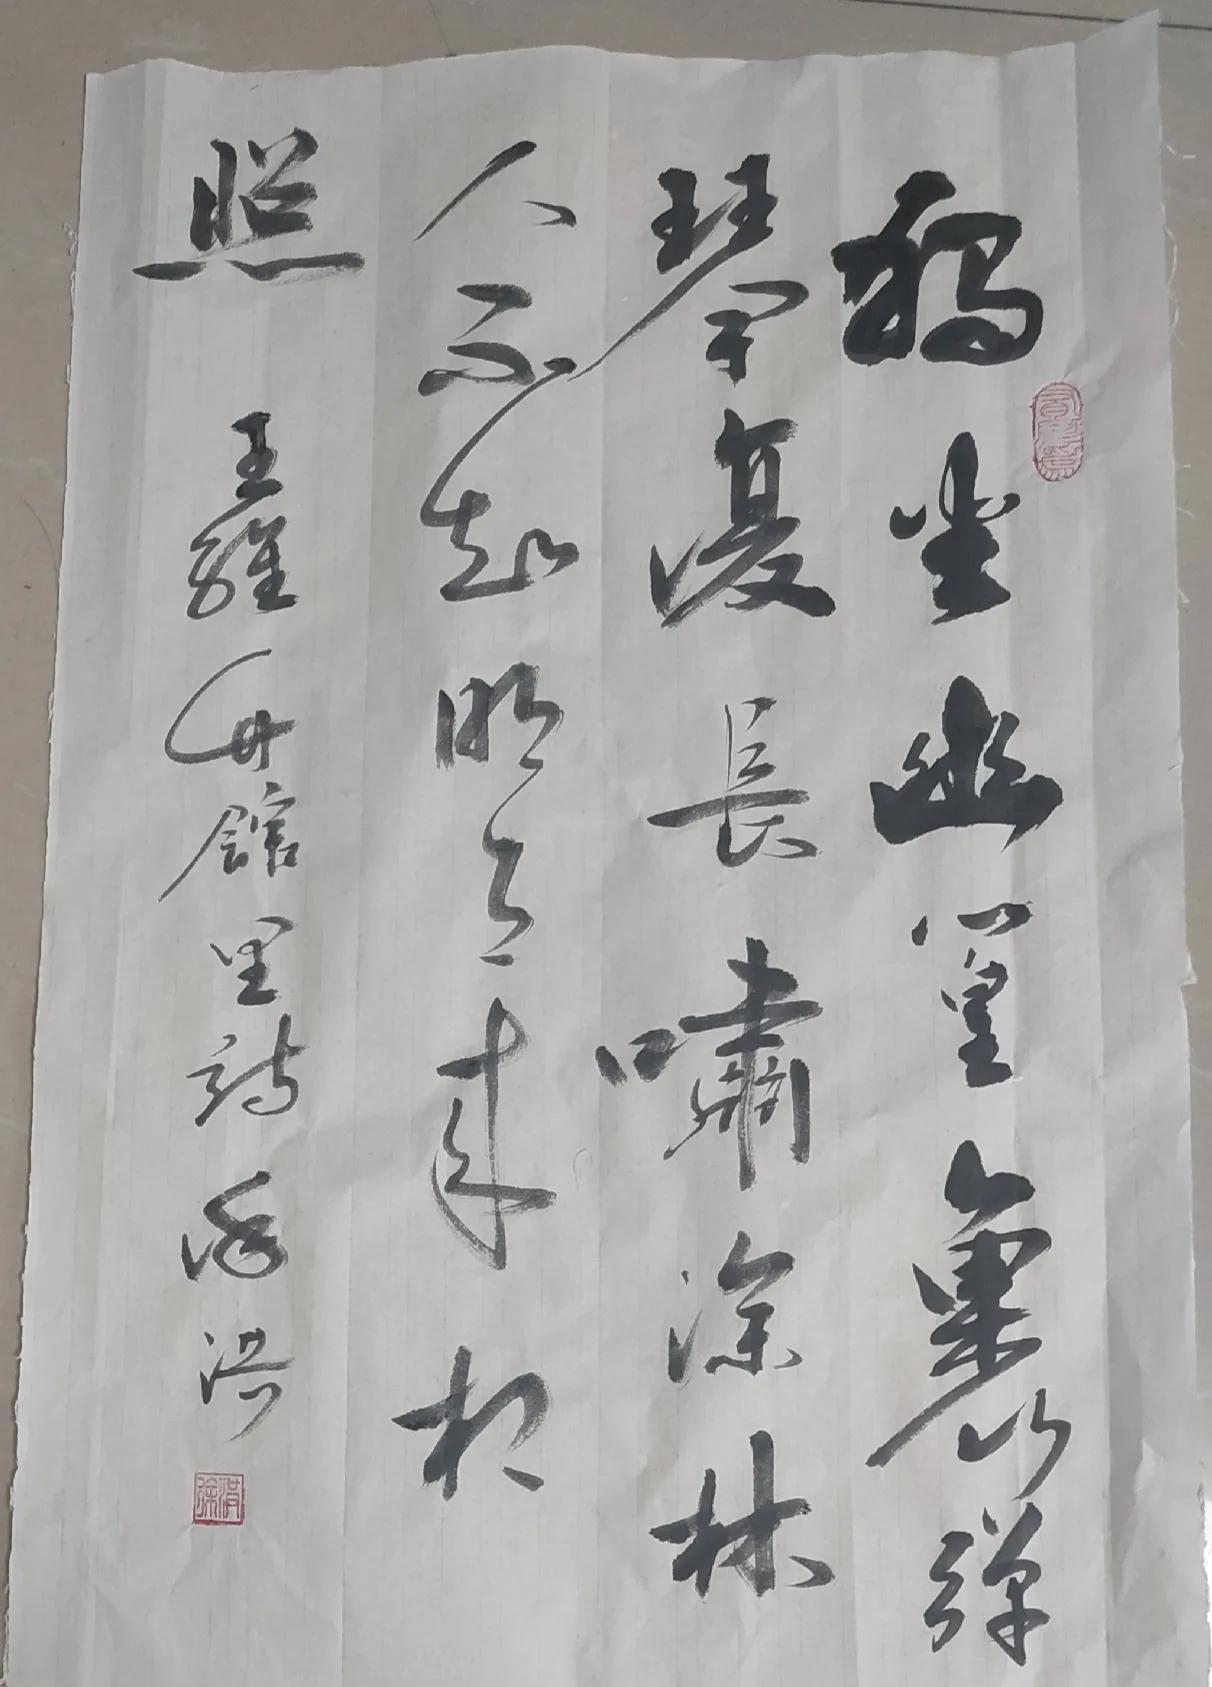 獨坐幽篁裏彈
琴復長嘯深林
人不知明月來相
照 王維竹館里詩 徐洪
徐洪